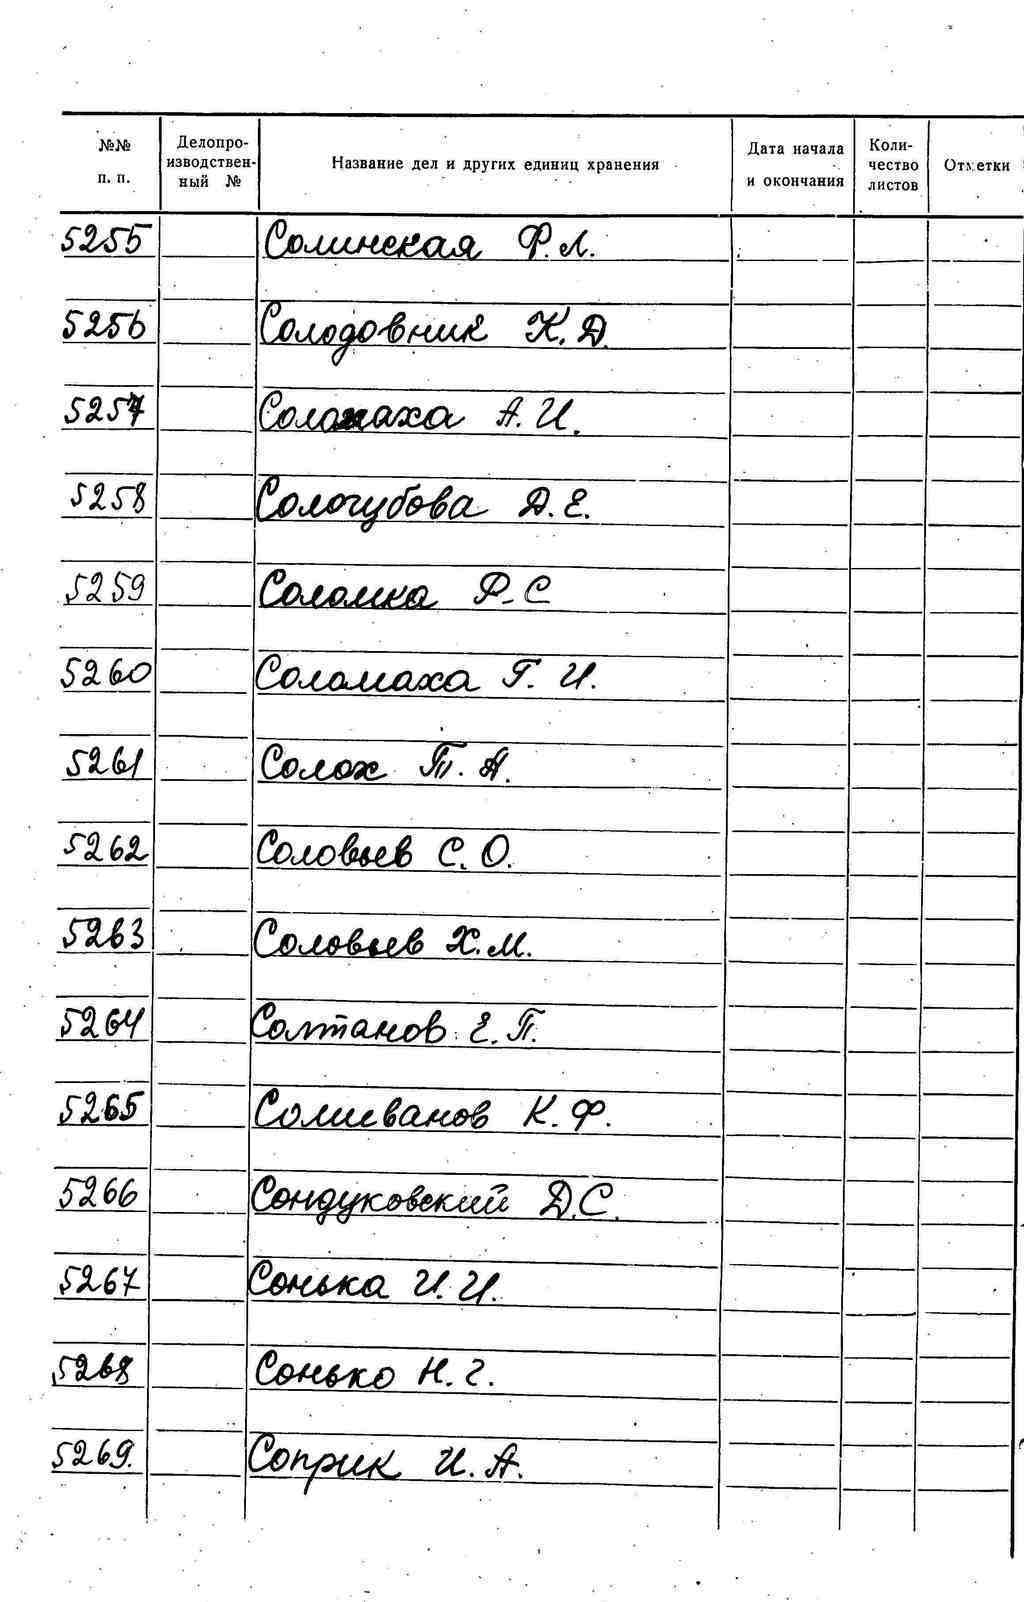 №№ п. п. Делопроизводственный № Название дел и других единиц хранения Дата начала и окончания Количество листов Отметки
5255 Солинская Ф. Л.
5256 Солодовник К. Д.
5257 Соломаха А. И.
5258 Сологубова Д. Е.
5259 Соломка Ф. С
5260 Соломаха Г. И.
5261 Солох Т. А.
5262 Соловьев С. О.
5263 Соловьев Х. М.
5264 Солтанов Е. П.
5265 Солиеванов К. Ф.
5266 Сондуковский Д. С.
5267 Сонька И. И.
5268 Сонько Н. Г.
5269. Соприк И. А.